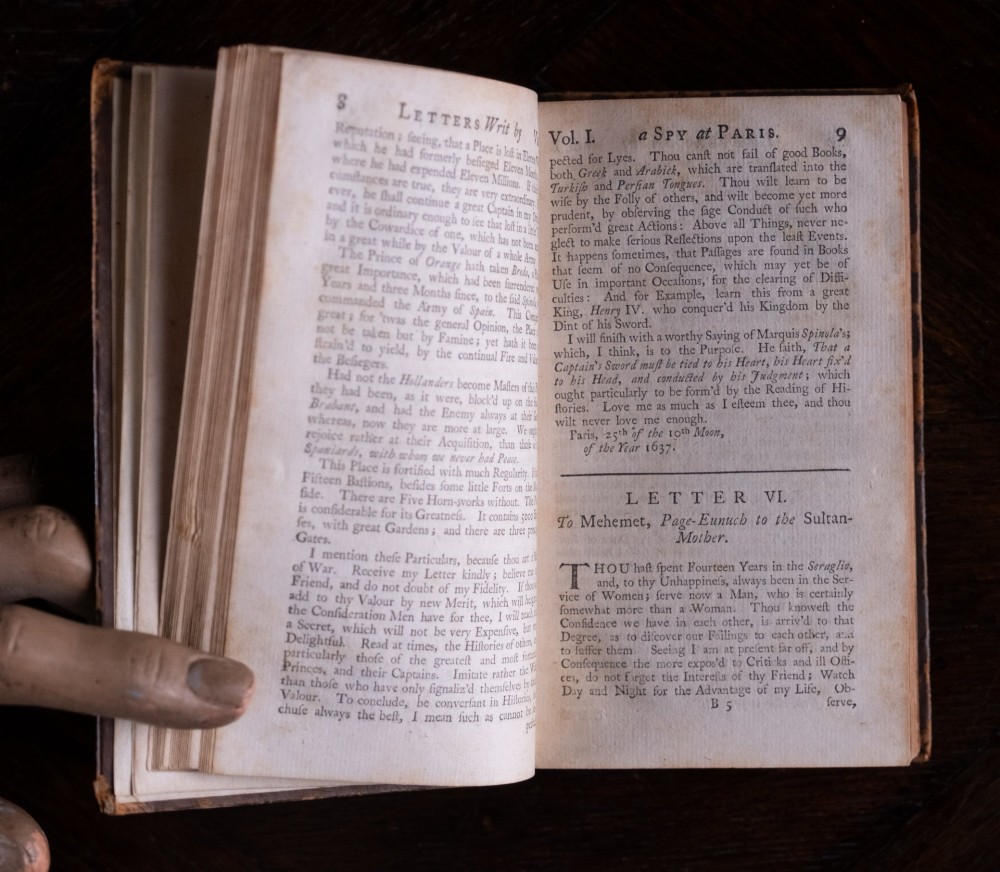 8 LETTERS Writ by
Reputation; seeing, that a Place is lost in Eleven
which he had formerly besieged Eleven
where he had expended Eleven Millions. If
cumstances are true, they are very extraordinary
ever, he shall continue a great Captain in my
and it is ordinary enough to see that lost in a little
by the Cowardice of one, which has not been
in a great while by the Valour of a whole Army
The Prince of Orange hath taken Breda, a
great Importance, which had been surrendered
Years and three Months since, to the said Spinola
commanded the Army of Spain. This
great; for 'twas the general Opinion, the Place
not be taken but by Famine; yet hath it been
strain'd to yield, by the continual Fire and
the Besiegers.
Had not the Hollanders become Masters of this
they had been, as it were, block'd up on the
Brabant, and had the Enemy always at their
whereas, now they are more at large. We
rejoice rather at their Acquisition, than
Spaniards, with whom we never had Peace.
This Place is fortified with much Regularity.
Fifteen Bastions, besides some little Forts on the
side. There are Five Horn-works without. The
is considerable for its Greatness. It contains 5000
ses, with great Gardens; and there are three
Gates.
I mention these Particulars, because thou art
of War. Receive my Letter kindly; believe
Friend, and do not doubt of my Fidelity. If thou
add to thy Valour by new Merit, which will
the Consideration Men have for thee, I will teach
a Secret, which will not be very Expensive, but
Delightful. Read at times, the Histories of others,
particularly those of the greatest and most
Princes, and their Captains. Imitate rather the
than those who have only signaliz'd themselves by
Valour. To conclude, be conversant in Histories,
chuse always the best, I mean such as cannot be
Vol. I. a SPY at PARIS. 9
pected for Lyes. Thou canst not fail of good Books,
both Greek and Arabick, which are translated into the
Turkish and Persian Tongues. Thou wilt learn to be
wise by the Folly of others, and wilt become yet more
prudent, by observing the sage Conduct of such who
perform'd great Actions: Above all Things, never ne-
glect to make serious Reflections upon the least Events.
It happens sometimes, that Passages are found in Books
that seem of no Consequence, which may yet be of
Use in important Occasions, for the clearing of Diffi-
culties: And for Example, learn this from a great
King, Henry IV. who conquer'd his Kingdom by the
Dint of his Sword.
I will finish with a worthy Saying of Marquis Spinola's;
which, I think, is to the Purpose. He saith, That a
Captain's Sword must be tied to his Heart, his Heart fix'd
to his Head, and conducted by his Judgment; which
ought particularly to be form'd by the Reading of Hi-
stories. Love me as much as I esteem thee, and thou
wilt never love me enough.
Paris, 25th of the 10th Moon,
of the Year 1637.
LETTER VI.
To Mehemet, Page-Eunuch to the Sultan-
Mother.
THOU hast spent Fourteen Years in the Seraglio,
and, to thy Unhappiness, always been in the Ser-
vice of Women; serve now a Man, who is certainly
somewhat more than a Woman. Thou knowest the
Confidence we have in each other, is arriv'd to that
Degree, as to discover our Failings to each other, and
to suffer them Seeing I am at present far off, and by
Consequence the more expos'd to Criticks and ill Offi-
ces, do not forget the Interests of thy Friend; Watch
Day and Night for the Advantage of my Life, Ob-
B 5 serve,